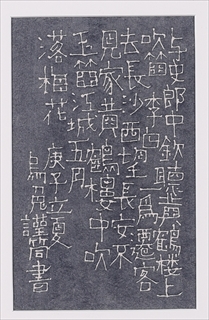 与史郎中欽聽黃鶴楼上
吹笛 李白 一爲遷客
去長沙西望長安不
見家黃鶴樓中吹
玉笛江城五月
落梅花 庚子立夏
謹書